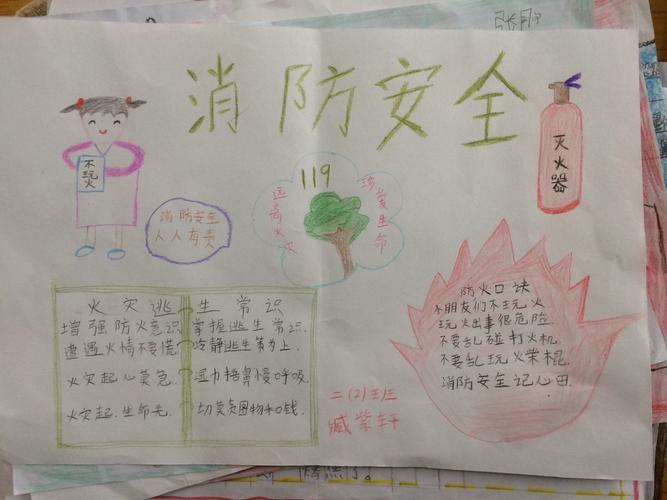 消防安全
不玩火
消防安全
人人有责
119
远离火灾
珍爱生命
灭火器
火灾逃生常识
增强防火意识 掌握逃生常识.
遭遇火情不要慌 冷静逃生第为上.
火灾起心莫急. 湿巾捂鼻慢呼吸.
火灾起.生命先. 切莫贪图物和钱.
防火口诀
小朋友们不玩火
玩火出事很危险.
不要乱碰打火机.
不要乱玩火柴棍.
消防安全记心田.
二(2)班
臧紫轩